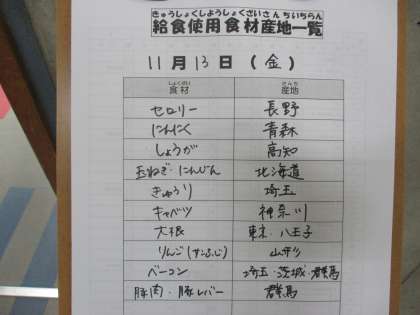 きゅうしょくしようしょくざいさんちいちらん
給食使用食材産地一覧
11月13日(金)
しょくざい さんち
食材 産地
セロリー 長野
にんにく 青森
しょうが 高知
玉ねぎ・にんじん 北海道
きゅうり 埼玉
キャベツ 神奈川
大根 東京・八王子
りんご(サンふじ) 山形
ベーコン 埼玉・茨城・群馬
豚肉・豚レバー 群馬